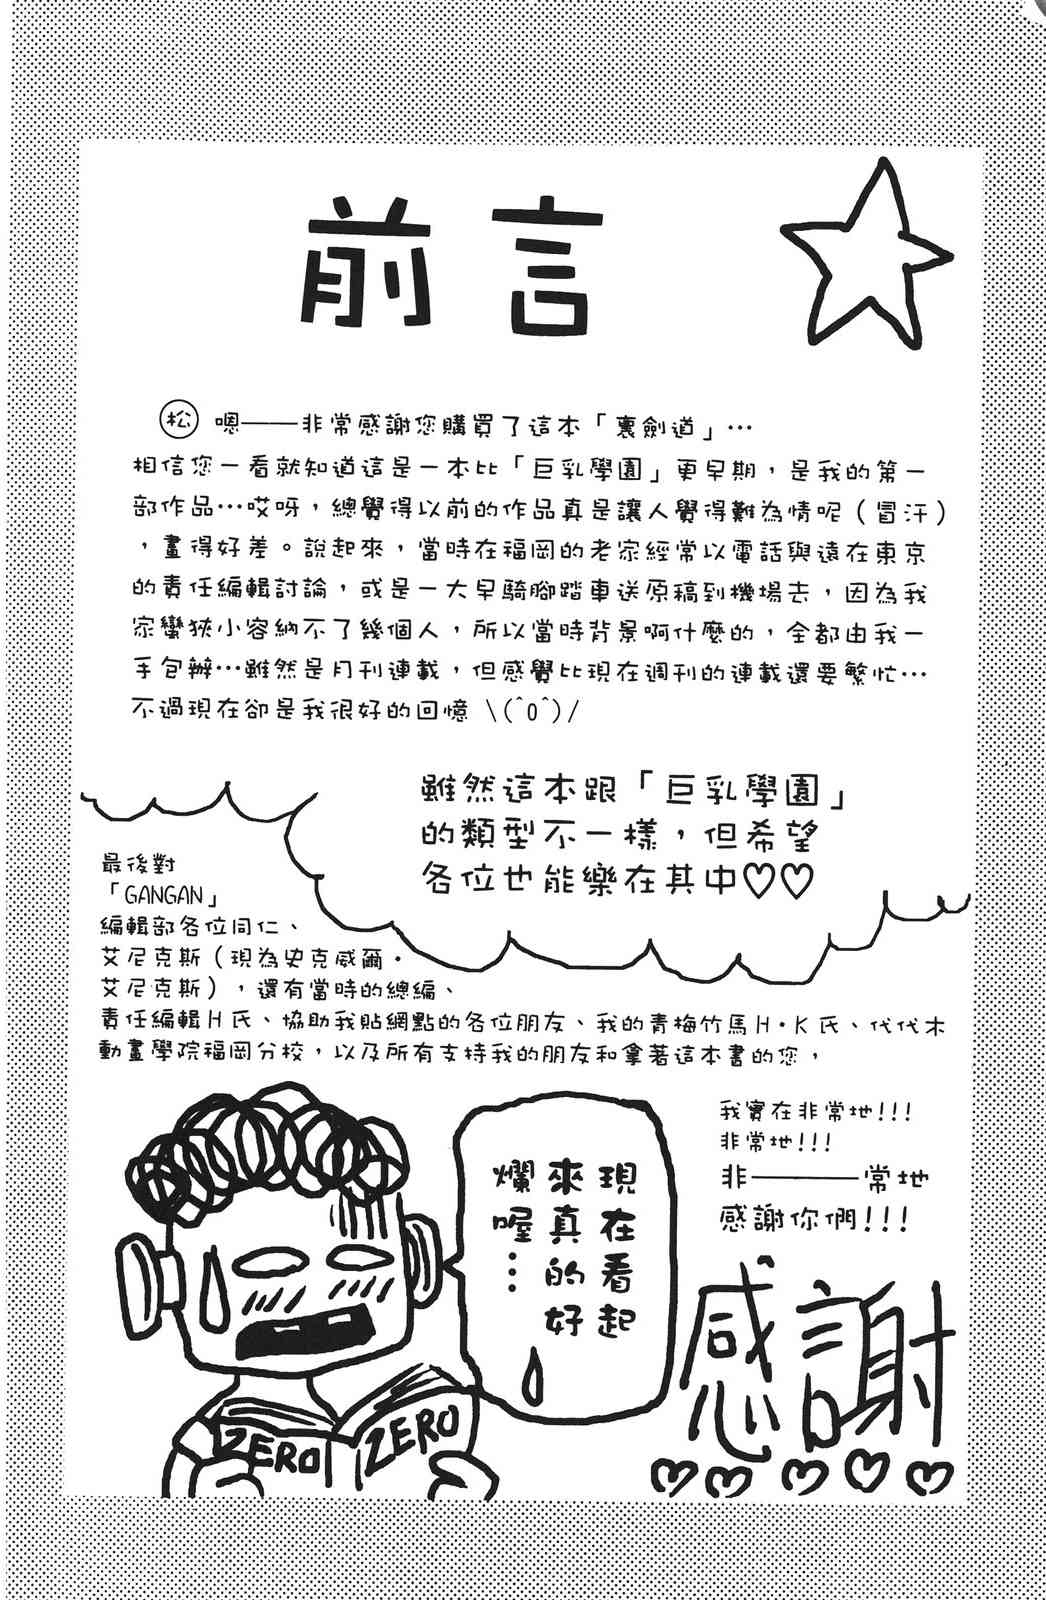 前言
松 嗯——非常感謝您購買了這本「裏劍道」…
相信您一看就知道這是一本比「巨乳學園」更早期，是我的第一
部作品…哎呀，總覺得以前的作品真是讓人覺得難為情呢（冒汗）
，畫得好差。說起來，當時在福岡的老家經常以電話與遠在東京
的責任編輯討論，或是一大早騎腳踏車送原稿到機場去，因為我
家蠻狹小容納不了幾個人，所以當時背景啊什麼的，全都由我一
手包辦…雖然是月刊連載，但感覺比現在週刊的連載還要繁忙…
不過現在卻是我很好的回憶 \(^0^)/
雖然這本跟「巨乳學園」
的類型不一樣，但希望
各位也能樂在其中♡♡
最後對
「GANGAN」
編輯部各位同仁、
艾尼克斯（現為史克威爾・
艾尼克斯），還有當時的總編、
責任編輯H氏、協助我貼網點的各位朋友、我的青梅竹馬H・K氏、代代木
動畫學院福岡分校，以及所有支持我的朋友和拿著這本書的您，
我實在非常地!!!
非常地!!!
非———常地
感謝你們!!!
現在看起
來真的好
爛喔…
感謝
ZERO
ZERO